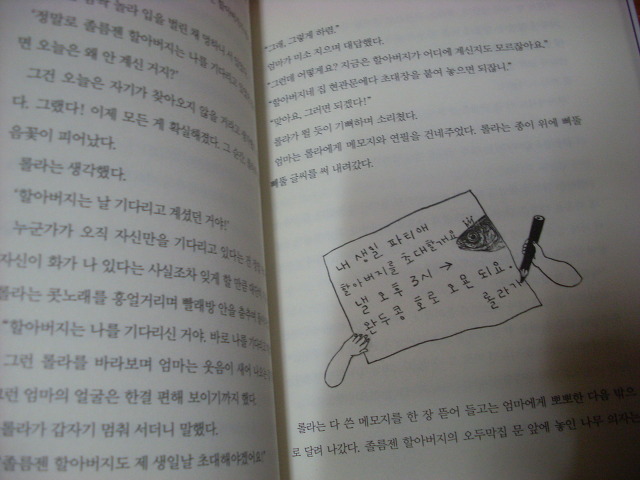 입을 벌린 채
"정말로 졸름젠 할아버지는 나를 기다리고
면 오늘은 왜 안 계신 거지?"
그건 오늘은 자기가 찾아오지 않을 거라고
다. 그랬다! 이제 모든 게 확실해졌다. 그 순간,
음꽃이 피어났다.
롤라는 생각했다.
'할아버지는 날 기다리고 계셨던 거야!'
누군가가 오직 자신만을 기다리고 있다는
자신이 화가 나 있다는 사실조차 잊게 할 만큼
롤라는 콧노래를 흥얼거리며 빨래방 안을 춤추며
"할아버지는 나를 기다리신 거야. 바로 나를
그런 롤라를 바라보며 엄마는 웃음이 새어
그런 엄마의 얼굴은 한결 편해 보이기까지 했다.
롤라가 갑자기 멈춰 서더니 말했다.
"졸름젠 할아버지도 제 생일날 초대해야겠어요"
"그래, 그렇게 하렴."
엄마가 미소 지으며 대답했다.
"그런데 어떻게요? 지금은 할아버지가 어디에 계신지도 모르잖아요."
"할아버지네 집 현관문에다 초대장을 붙여 놓으면 되잖니."
"맞아요, 그러면 되겠다!"
롤라가 뛸 듯이 기뻐하며 소리쳤다.
엄마는 롤라에게 메모지와 연필을 건네주었다. 롤라는 종이 위에 삐뚤
빼뚤 글씨를 써 내려갔다.
내 생일 파티애
할아버지를 초대할개요
낼 오후 3시 →
완두콩 호로 오믄 되요.
롤라가
롤라는 다 쓴 메모지를 한 장 뜯어 들고는 엄마에게 뽀뽀한 다음 밖으
로 달려 나갔다. 졸름젠 할아버지의 오두막집 문 앞에 놓인 나무 의자는